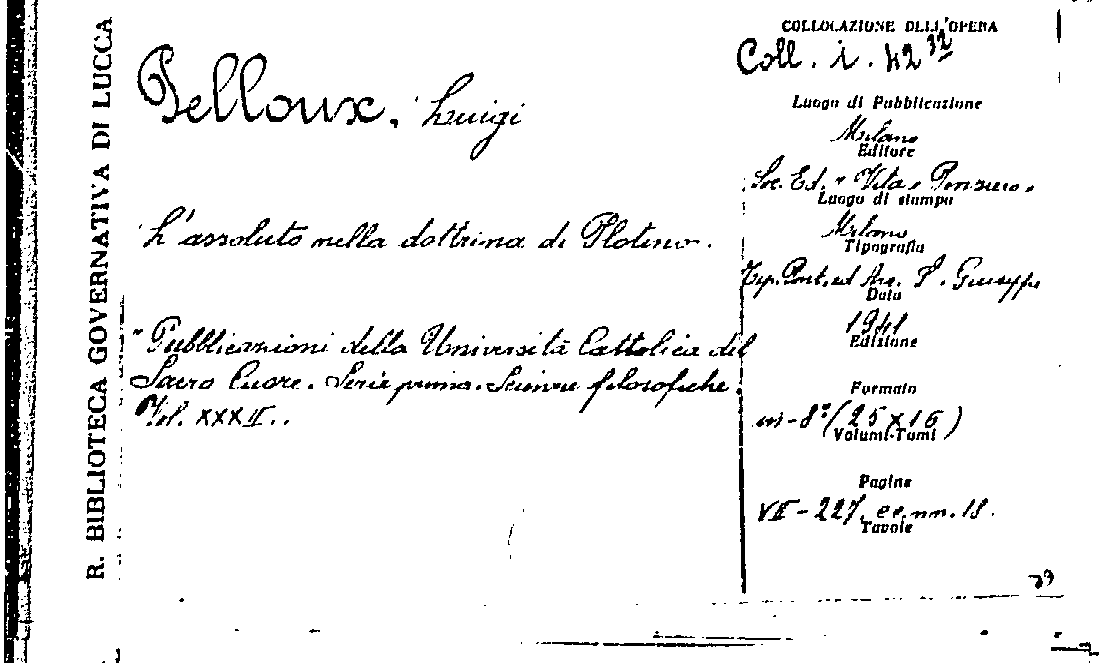 R. BIBLIOTECA GOVERNATIVA DI LUCCA
Pelloux, Luigi
L'assoluto nella dottrina di Plotino.
"Pubblicazioni della Università Cattolica del
Sacro Cuore. Serie prima. Scienze filosofiche.
Vol. XXXII..
COLLOCAZIONE DELL'OPERA
Coll. i. 42 32
Luogo di Pubblicazione
Milano
Editore
Soc. Ed. "Vita e Pensiero"
Luogo di stampa
Milano
Tipografia
Tip. Pont. ed Arc. S. Giuseppe
Data
1941
Edizione
Formato
in-8° (25 x 16)
Volumi-Tomi
Pagine
VII - 227, cc. nn. 18.
Tavole